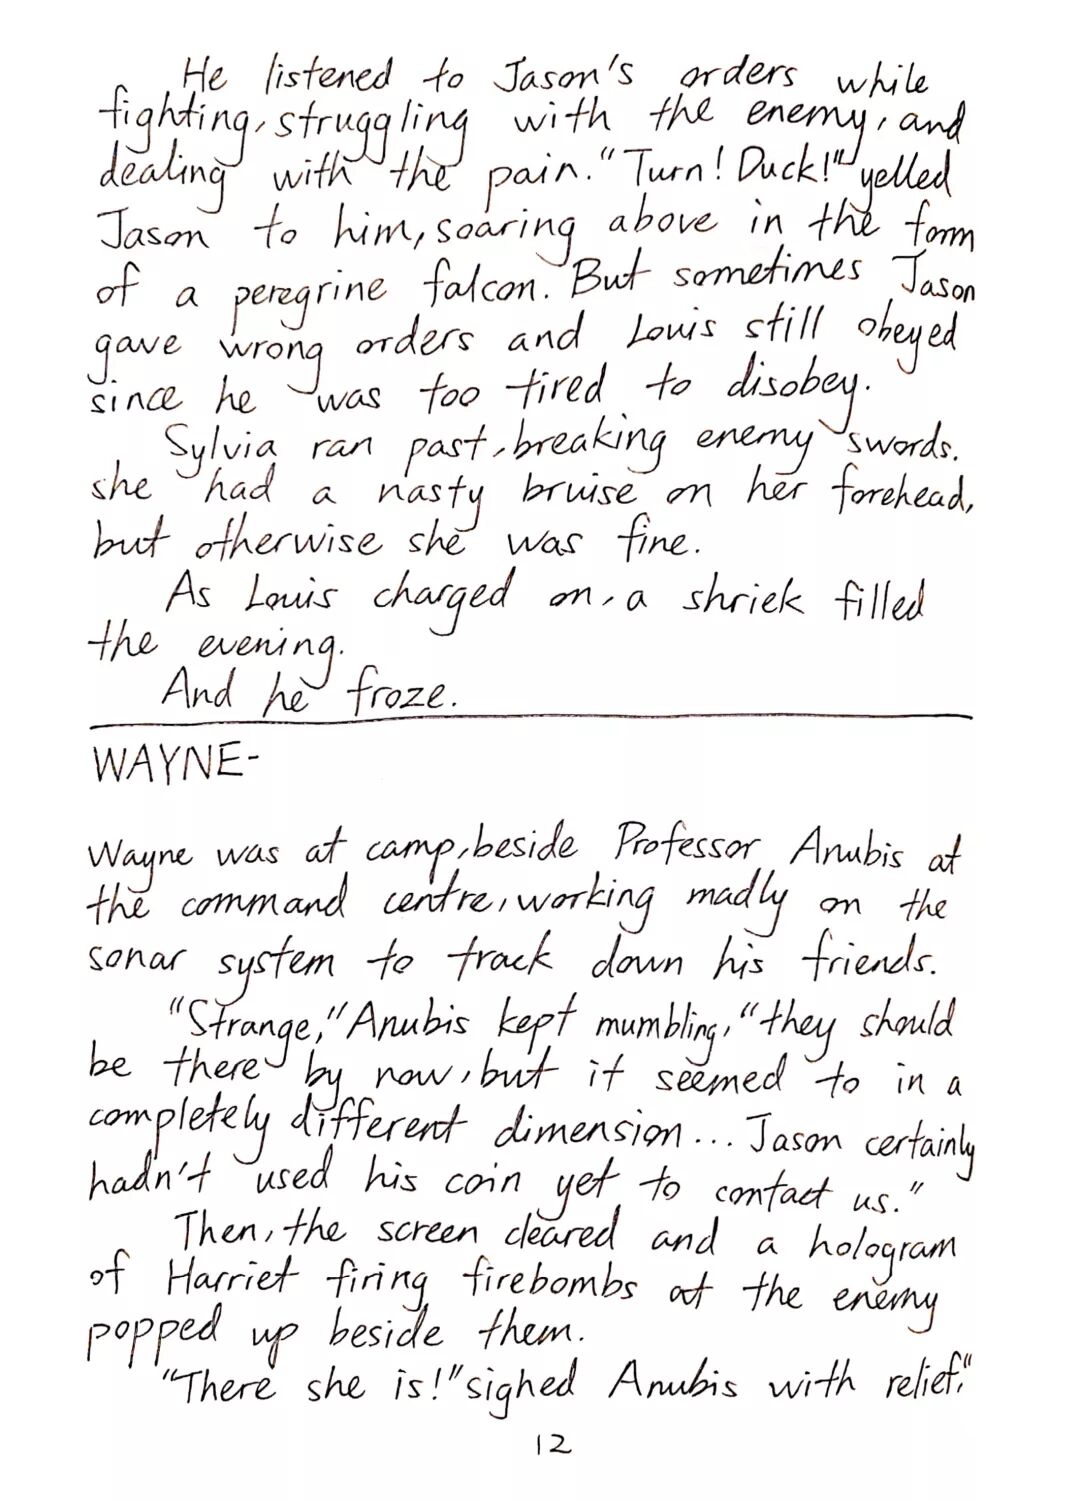 He listened to Jason's orders while
fighting, struggling with the enemy, and
dealing with the pain. "Turn! Duck!" yelled
Jason to him, soaring above in the form
of a peregrine falcon. But sometimes Jason
gave wrong orders and Louis still obeyed
since he was too tired to disobey.
Sylvia ran past, breaking enemy swords.
she had a nasty bruise on her forehead,
but otherwise she was fine.
As Louis charged on, a shriek filled
the evening.
And he froze.
WAYNE-
Wayne was at camp, beside Professor Anubis at
the command centre, working madly on the
sonar system to track down his friends.
"Strange," Anubis kept mumbling, "they should
be there by now, but it seemed to in a
completely different dimension... Jason certainly
hadn't used his coin yet to contact us."
Then, the screen cleared and a hologram
of Harriet firing firebombs at the enemy
popped up beside them.
"There she is!" sighed Anubis with relief, "
12